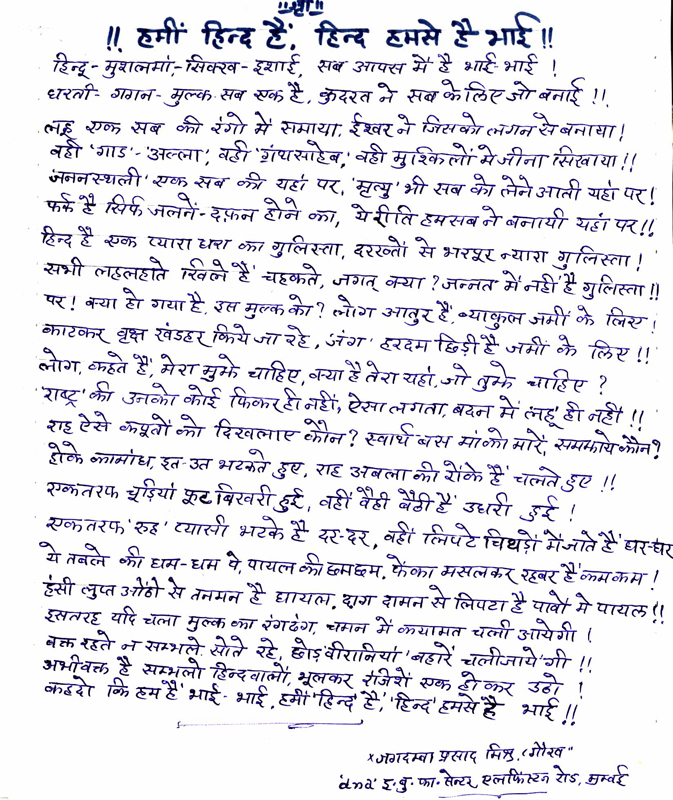 ॥श्री॥
!! हमीं हिन्द हैं, हिन्द हमसे है भाई !!
हिन्दू - मुशलमां, - सिक्ख - इशाई, सब आपस में है भाई-भाई !
धरती - गगन - मुल्क सब एक है, कुदरत ने सब के लिए जो बनाई !!
लहू एक सब की रंगो में समाया, ईश्वर ने जिसको लगन से बनाया !
वही 'गाड' - 'अल्ला', वही 'ग्रंथसाहेब,' वही मुश्किलों मे जीना सिखाया !!
'जननस्थली' एक सब की यहां पर, 'मृत्यु' भी सब को लेने आती यहां पर !
फर्क है सिर्फ जलनें - दफ़न होने का, ये रीति हमसब ने बनायी यहां पर !!
हिन्द है एक प्यारा धरा का गुलिस्ता, दरख्तों से भरपूर न्यारा गुलिस्ता !
सभी लहलहाते खिले हैं चहकते, जगत् क्या ? जन्नत में नही है गुलिस्ता !!
पर ! क्या हो गया है, इस मुल्क को ? लोग आतुर हैं, व्याकुल जमीं के लिए !
काटकर वृक्ष खंडहर किये जा रहे, 'जंग' हरदम छिड़ी है जमीं के लिए !!
लोग, कहते हैं, मेरा मुझे चाहिए, क्या है तेरा यहां, जो तुझे चाहिए ?
'राष्ट्र' की उनको कोई फिकर ही नहीं, ऐसा लगता, बदन में लहू ही नही !!
राह ऐसे कपूतों को दिखलाए कौन ? स्वार्थ बस मां को मारें, समझाये कौन ?
होके कामांध, इत-उत भटकते हुए, राह अबला की रोंके हैं चलते हुए !!
एकतरफ चूड़ियां फूट बिखरी हुई, वहीं वैही बैठी हैं उधरी हुई !
एकतरफ 'रुह' प्यासी भटके है दर-दर, वहीं लिपटे चिथड़ों में जाते हैं घर-घर
ये तबले की धम-धम पे, पायल की छमछम, फेंका मसलकर रहबर हैं कमकम !
हंसी लुप्त ओंठो से तनमन है घायल, दाग दामन से लिपटा है पावों मे पायल !!
इसतरह यदि चला मुल्क का रंगढंग, चमन में कयामत चली आयेगी !
वक्त रहते न सम्भले सोते रहे, छोड़ वीरानियां बहारें चलीजायेगी !!
अभीवक्त है सम्भलो हिन्दवालों, भूलकर रंजिशें एक हो कर उठो !
कहदो कि हम हैं भाई - भाई, हमीं 'हिन्द' है, 'हिन्द' हमसे है भाई !!
× जगदम्बा प्रसाद मिश्र, "गौरव"
'dna' इ. वु. फा. सेन्टर, एलफिंस्टन रोड, मुम्बई